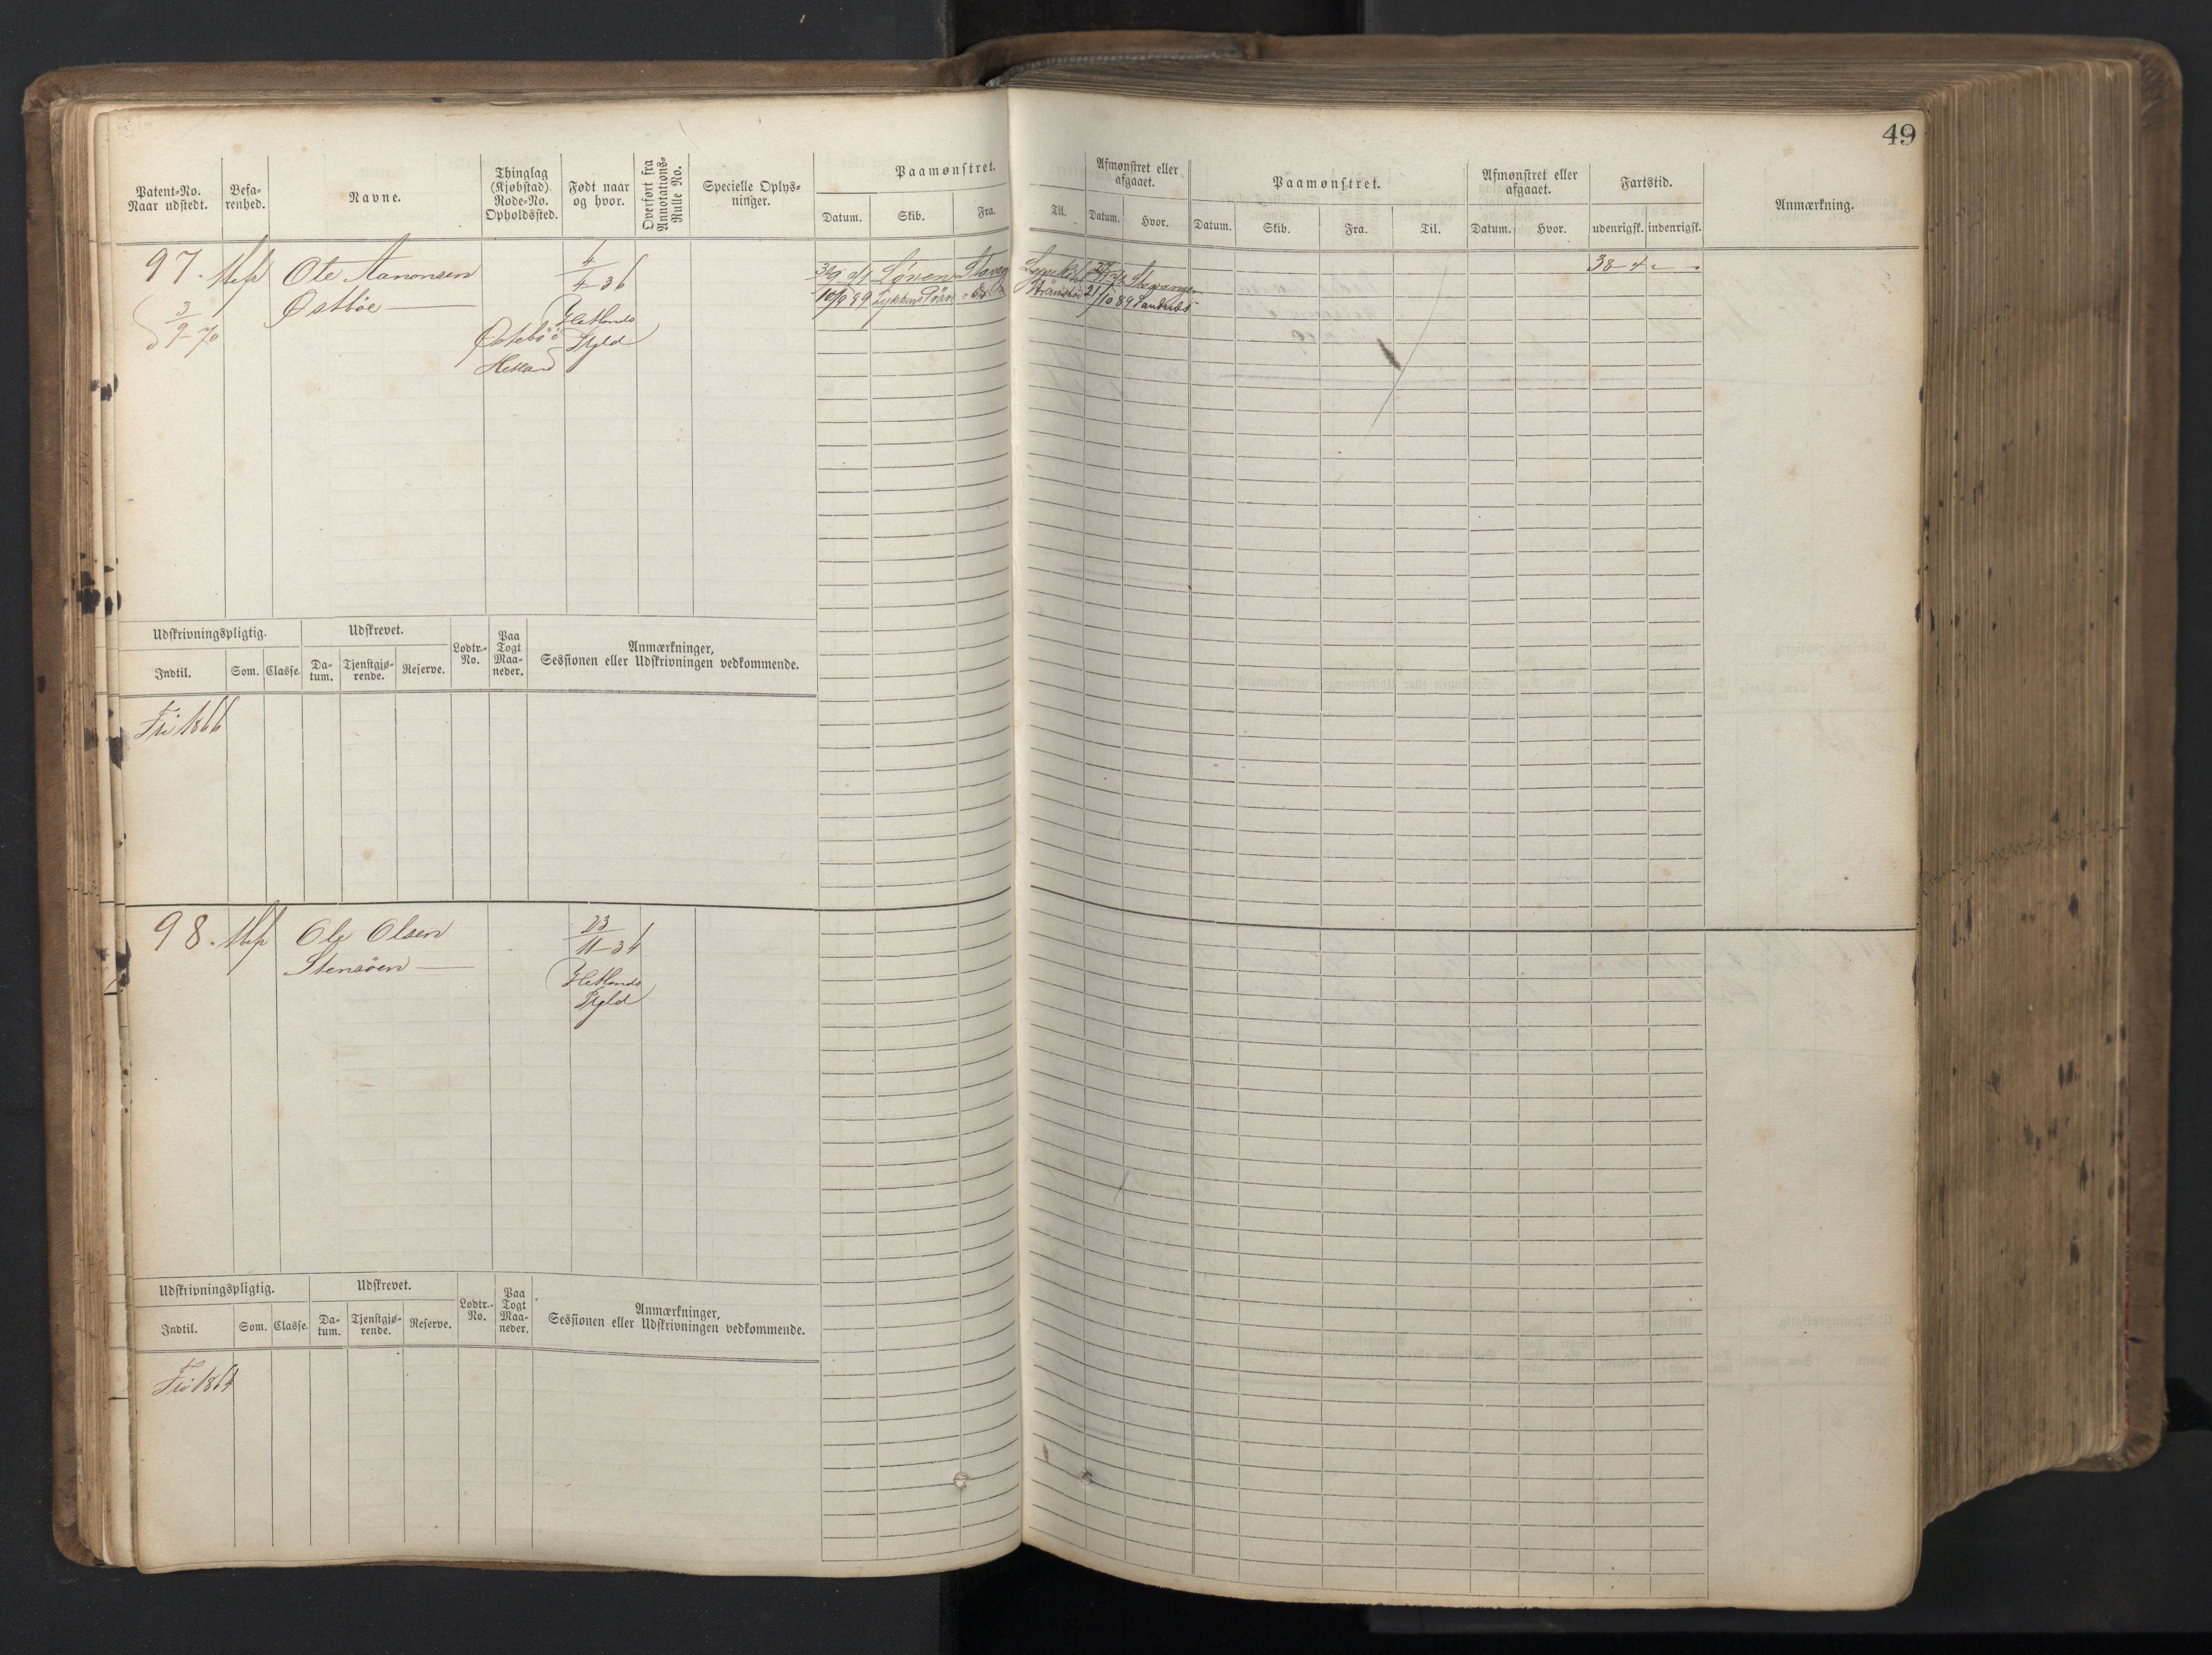 49
Patent-No. Naar udstedt.
Befa-renhed.
Navne.
Thinglag (Kjøbstad). Rode-No. Opholdssted.
Født naar og hvor.
Overført fra Annotations-Rulle No.
Specielle Oplys-ninger.
Paamønstret.
Datum. Skib. Fra. Til.
Afmønstret eller afgaaet.
Datum. Hvor.
Paamønstret.
Datum. Skib. Fra. Til.
Afmønstret eller afgaaet.
Datum. Hvor.
Fartstid.
udenrigsk. indenrigsk.
Anmærkning.
97.
Ole Aanonsen
Østbøe
3/9-70
4/4-36
Hetlands
Pgld
Østebø
Hetland
Løven Stavgr
Stavanger
10/9 89 Lykkens Prøve
21/10 89
38-4
Udskrivningspligtig.
Indtil. Som. Classe.
Udskrevet.
Da-tum. Tjenstgjø-rende. Reserve.
Lodtr.-No.
Paa Togt Maa-neder.
Anmærkninger,
Sessionen eller Udskrivningen vedkommende.
Fri 1866
98.
Ole Olsen
Stensøen
23/11-34
Hetlands
Pgld
Udskrivningspligtig.
Indtil. Som. Classe.
Udskrevet.
Da-tum. Tjenstgjø-rende. Reserve.
Lodtr.-No.
Paa Togt Maa-neder.
Anmærkninger,
Sessionen eller Udskrivningen vedkommende.
Fri 1864